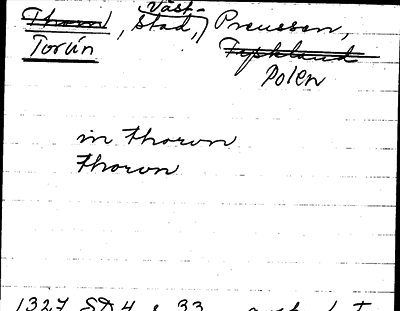 Thorn, Väst-
stad, Preussen,
Toruń Tyskland
Polen
in thorun
thorun
1327 SD 4 s 33